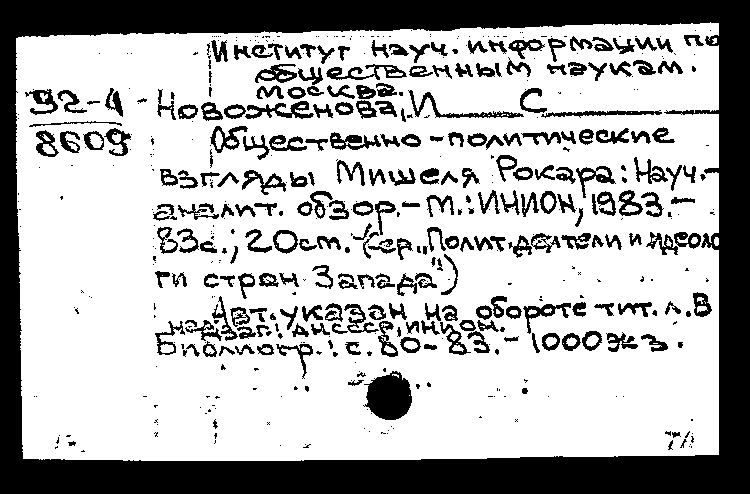 Институт науч. информации по
общественным наукам.
Москва.
92-4 Новоженова, И С
8609 Общественно-политические
взгляды Мишеля Рокара: Науч.-
аналит. обзор.- М.: ИНИОН, 1983.-
83с.; 20см. - (сер. „Полит. деятели и идеоло
ги стран Запада")
Авт. указан на обороте тит. л. В
надзаг.: АН СССР, ИНИОН.
Библиогр.: с. 80-83. - 1000 экз.